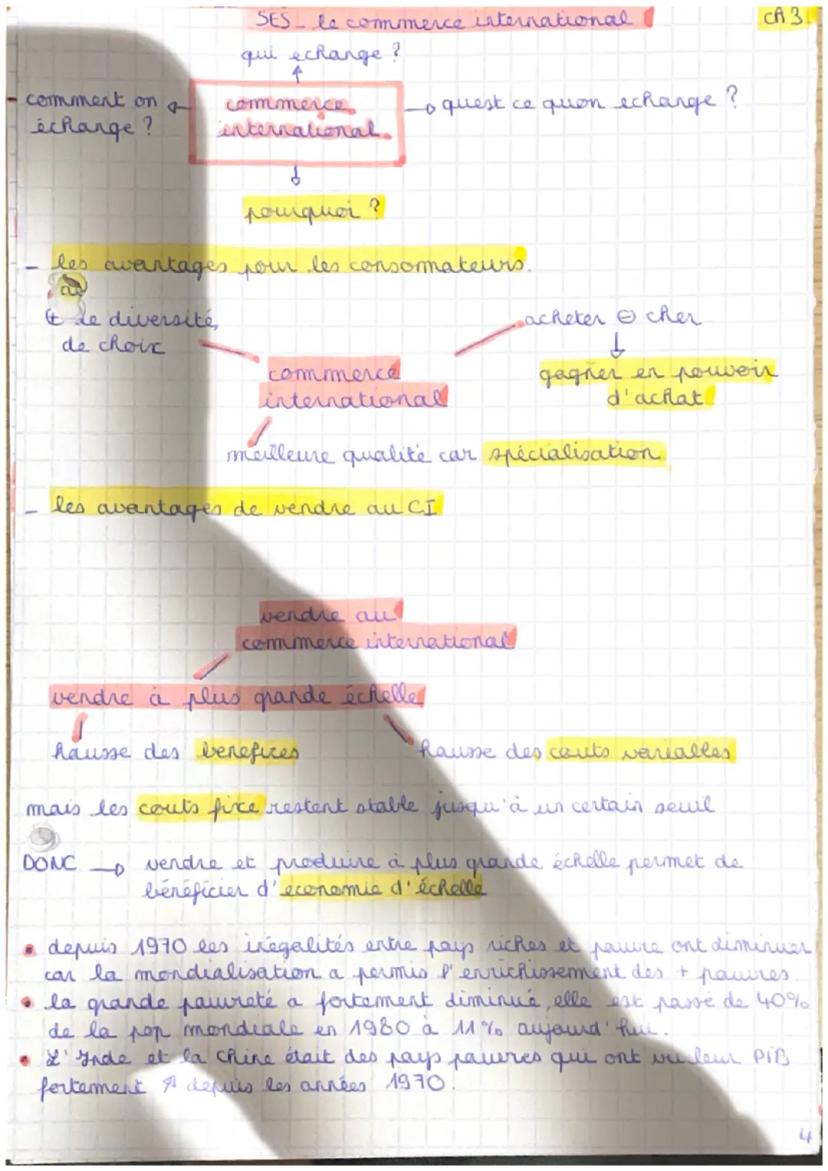 SES - le commerce international
CH 3
qui echange ?
comment on
échange ?
commerce
international
quest ce quon echange ?
pourquoi ?
- les avantages pour les consomateurs.
⊕ de diversité,
de choix
acheter ⊖ cher
gagner en pouvoir
d'achat
commerce
international
meilleure qualité car spécialisation
- les avantages de vendre au CI
vendre au
commerce international
vendre à plus grande échelle
hausse des benefices
hausse des couts variables
mais les couts fixe restent stable jusqu'à un certain seuil
DONC → vendre et produire à plus grande échelle permet de
bénéficier d'économie d'échelle
• depuis 1970 les inégalités entre pays riches et pauvre ont diminuer
car la mondialisation a permis l'enrichissement des + pauvres.
• la grande pauvreté a fortement diminué, elle est passé de 40%
de la pop mondiale en 1980 à 11% aujourd'hui.
• L'Inde et la Chine était des pays pauvres qui ont vu leur PIB
fortement ↗ depuis les années 1970.
4